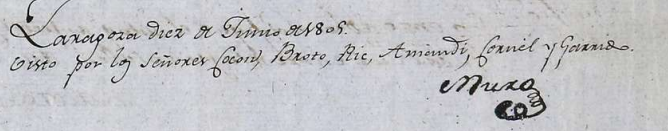 Zaragoza diez de Junio de 1805.
Visto por los Señores Cocon, Broto, Ric, Amandi, Cornel y Garrido.
Muro